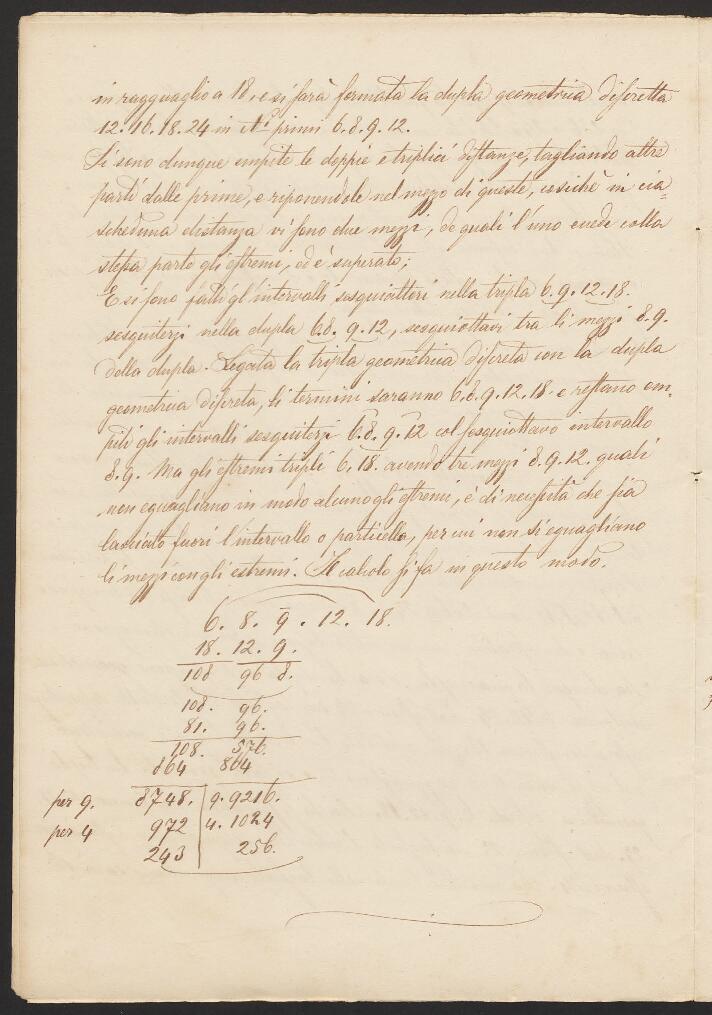 in ragguaglio a 18, e si farà formata la dupla geometrica discretta
12. 16. 18. 24 in N.i primi 6. 8. 9. 12.
Si sono dunque empite le doppie e triplici distanze, tagliando altre
parti dalle prime, e riponendole nel mezzo di queste, cosichè in cia=
scheduna distanza vi sono due mezzi, de quali l'uno excede colla
stessa parte gli estremi, ed è superato;
E si sono fatti gl'intervalli sesquialteri nella tripla 6. 9. 12. 18.
sesquiterzi nella dupla 6.8. 9.12, sesquiottavi tra li mezzi 8.9.
della dupla. Legata la tripla geometrica discreta con la dupla
geometrica discreta, li termini saranno 6. 8. 9. 12. 18. e restano em=
piti gli intervalli sesquiterzi 6.8. 9.12 col sesquiottavo intervallo
8.9. Ma gli estremi tripli 6. 18. avendo tre mezzi 8. 9. 12. quali
non eguagliano in modo alcuno gli estremi, è di necessità che sia
lasciato fuori l'intervallo o particella, per cui non si eguagliano
li mezzi con gli estremi. Il calcolo si fa in questo modo.
6. 8. 9. 12. 18.
18. 12. 9.
108 96 8.
108. 96.
81. 96.
108. 576.
864 864
per 9. 8748. 9. 9216.
per 4 972 4. 1024
243 256.